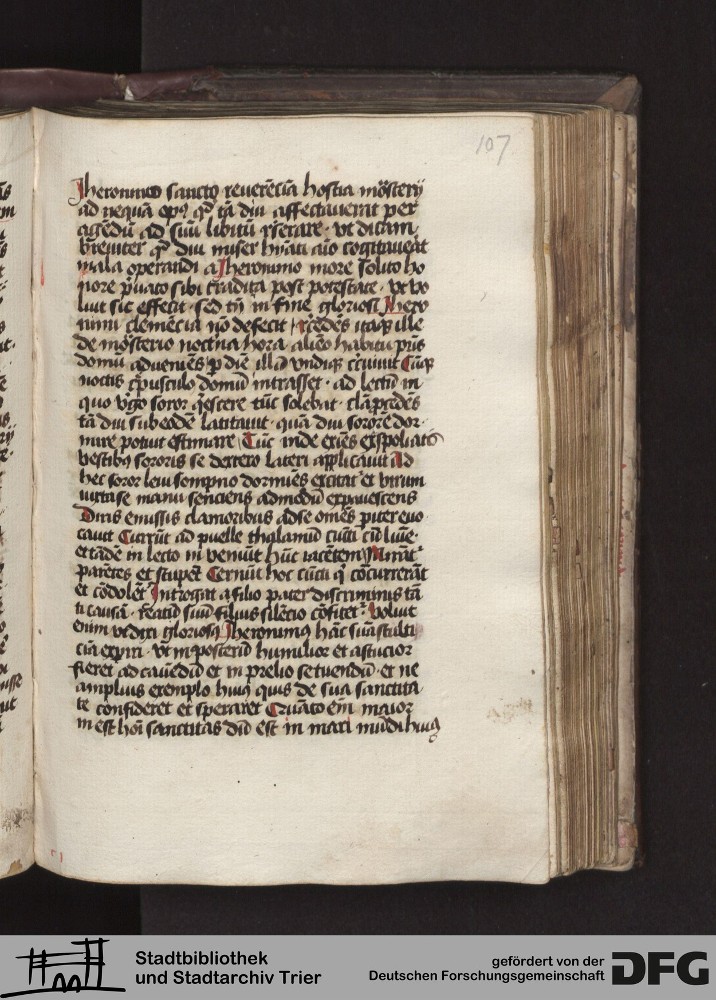 107
Jheronimo sancto reuerēcia hostia mōsterij
ad nequā opꝰ qd̄ tā diu affectauerat per
agēdū ad suū libitū r̄serare · vt dicam
breuiter qd̄ diu miser hn̄ati aīo cogitauerat
mala operandi a Jheronimo more solito ho
nore p̄uato sibi tradita post potestate · vt vo
luit sic effecit · sed tn̄ in fine gloriosi Jhero
nimi clemēcia nō defecit rcēdēs itaqꝫ ille
de mōsterio nocturna hora alieno habitu prius
domū adueniēs p diē illā vndiqꝫ
noctis crepusculo domū intrasset · ad lectū in
quo v̄go soror q̄escere tūc solebat · clā p̄cedēs
tā diu sub eodē latitauit · quā diu sorore dor
mire potuit estimare Tūc inde exiēs exspoliatis
vestibꝰ sororis se dextero lateri applicauit Ad
hec soror leui sompno dormiēs excitat̄ et virum
iuxta se manu senciens admodū expauescens
Diris emissis clamoribus ad se omēs pariter euo
cauit Currūt ad puelle thalamū cūcti cū lumīe ·
et tādē in lecto in veniūt hūc iacētem Mirāt̄
parētes et stupēt Cernūt hoc cūcti qͥ cōcurrerāt
et cōdolēt Introgat a filio pater discriminis tā
ti causā · reatū suū filius silētio cōfitet̄ Voluit
enim vt dixi gloriosꝰ Jheronimꝰ hāc suā stulti
ciā expiri · vt in posterū humilior et astucior
fieret ad cauēdū et in prelio se tuendū · et ne
amplius exemplo huiꝰ quis de sua sanctita
te confideret et speraret Cruato em̄ maior
in est hōi sanctitas dū est in mari mūdi huiꝰ
Stadtbibliothek
und Stadtarchiv Trier
gefördert von der
Deutschen Forschungsgemeinschaft
DFG